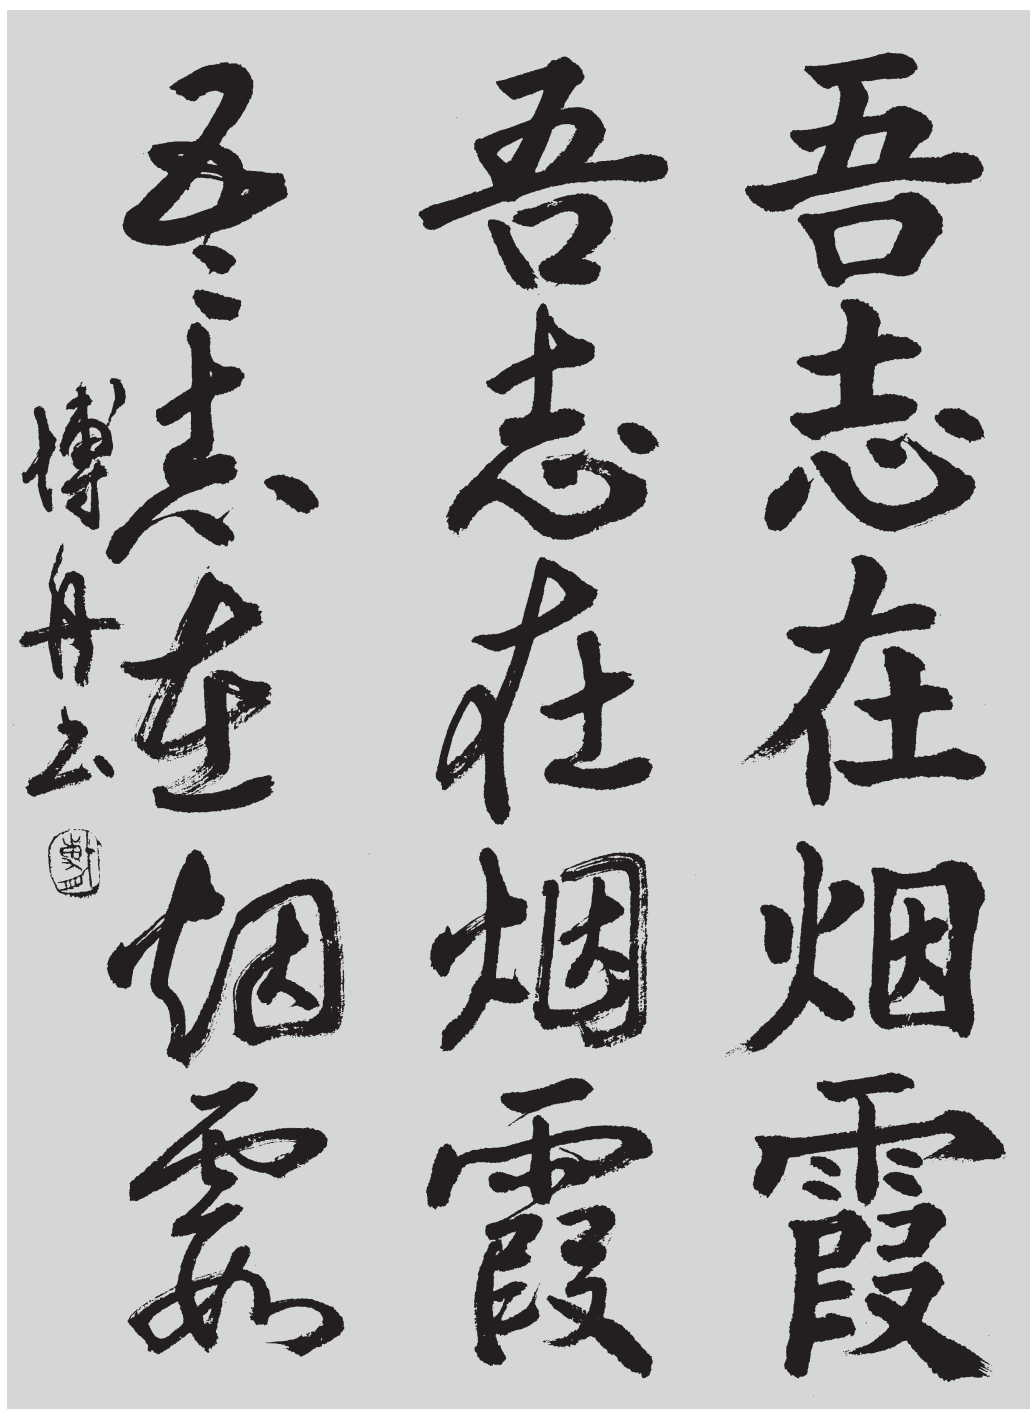 吾志在烟霞
吾志在烟霞
吾志在烟霞
博丹书